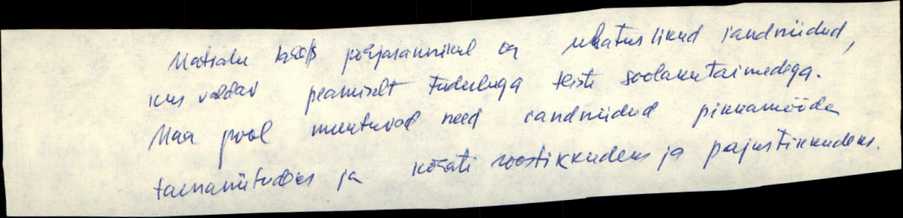 Matsalu lahe põhjarannikul on ulatuslikud randniidud,
kus valdav peamiselt tuderluga teiste soolakutaimedega.
Maa pool muutuvad need randniidud pikkamööda
taenaniitudeks ja kõsati roostikkudeks ja pajustikkudeks.